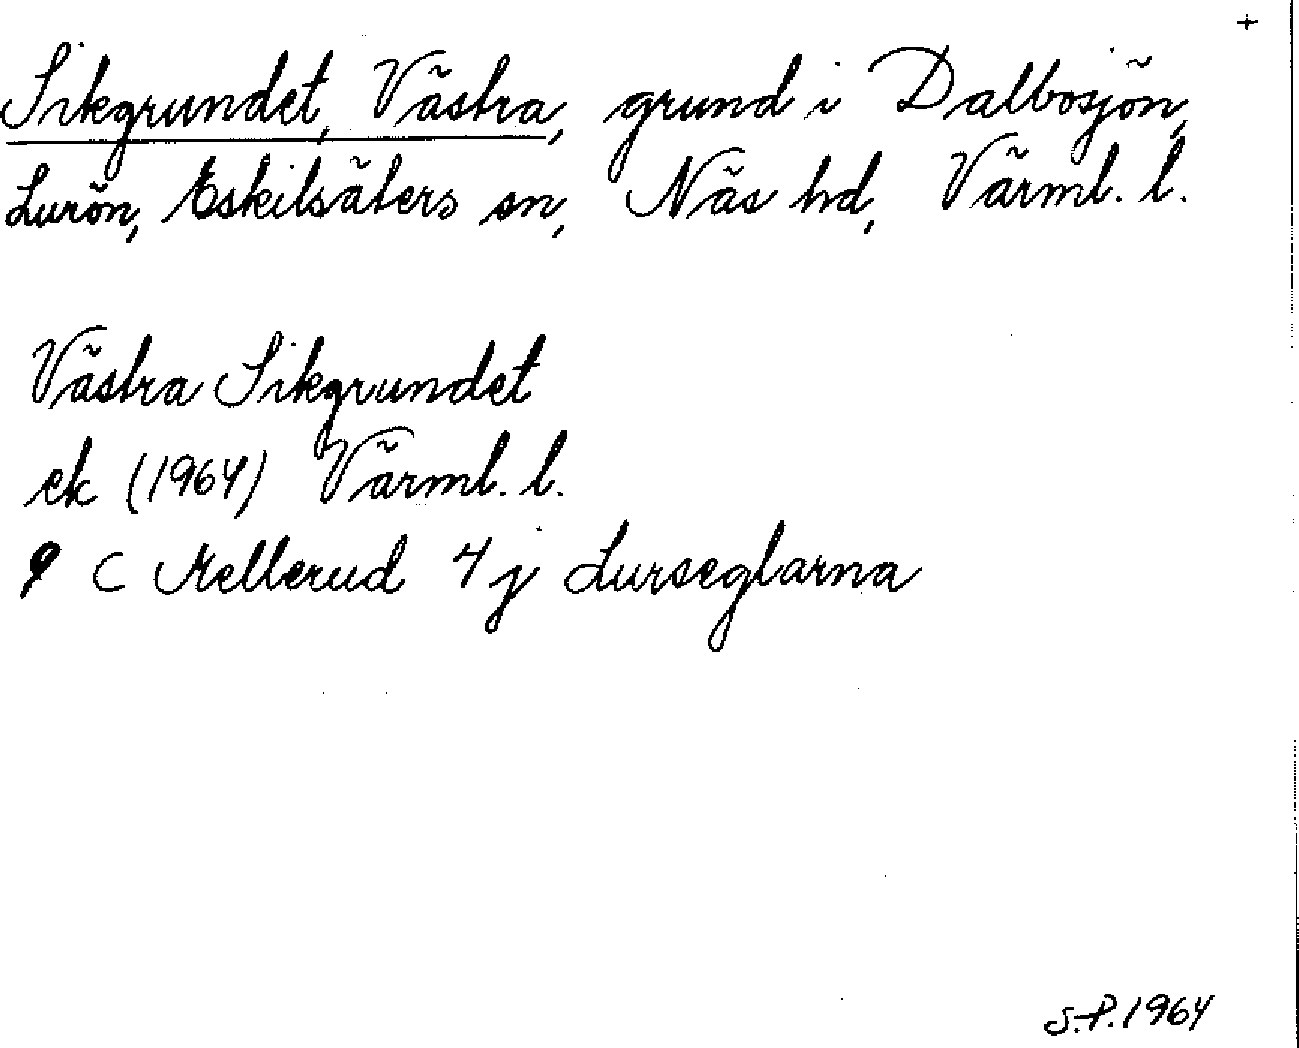 +
Sikgrundet, Västra, grund i Dalbosjön,
Lurön, Eskilsäters sn, Näs hd, Värml. l.
Västra Sikgrundet
ek (1964) Värml. l.
9 C Mellerud 4 j Lurseglarna
S.P. 1964